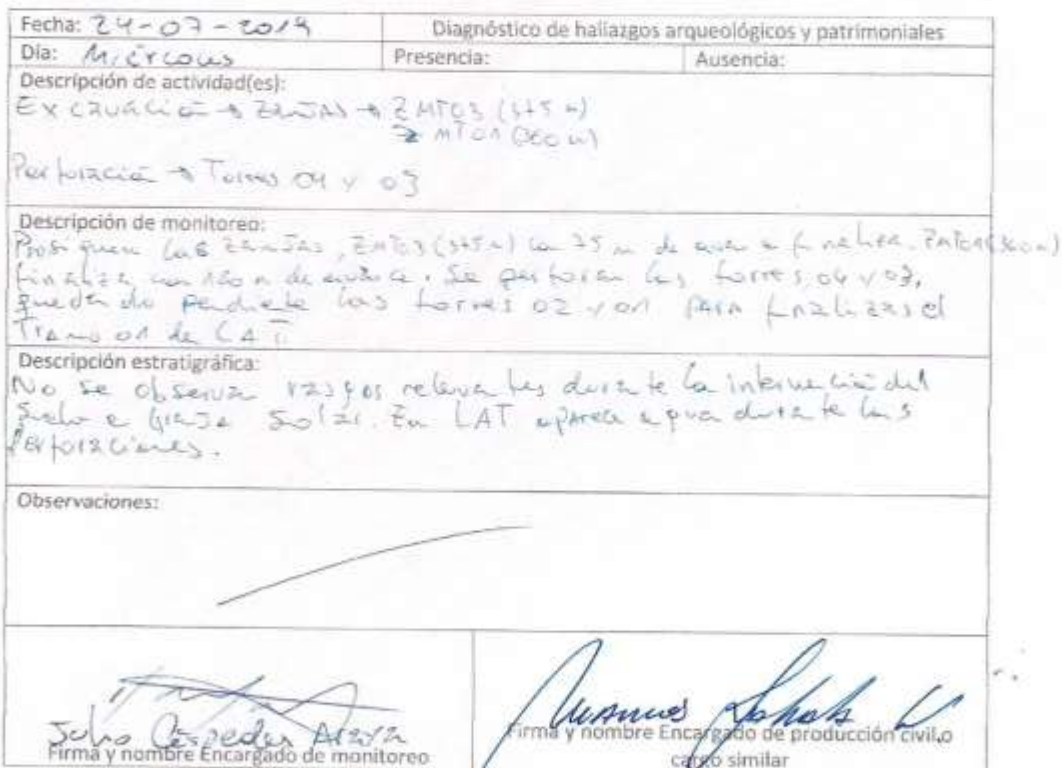 Fecha: 24-07-2019 Diagnóstico de hallazgos arqueológicos y patrimoniales
Día: Miércoles Presencia: Ausencia:
Descripción de actividad(es):
Excavación → Zanjas → ZMT03 (375 m)
→ MT01 (360 m)
Perforación → Torres 04 y 03
Descripción de monitoreo:
Prosiguen las zanjas, ZMT03 (375 m) con 75 m de a finalizar. ZMT01 (360 m)
finaliza con 180 m de avance. Se perforan las torres 04 y 03,
quedando pendiente las torres 02 y 01 para finalizar el
Tramo 01 de LAT
Descripción estratigráfica:
No se observan rasgos relevantes durante la intervención del
suelo e Granja Solar. En LAT aparece agua durante las
perforaciones.
Observaciones:
Julio Céspedes Araya
Firma y nombre Encargado de monitoreo
Firma y nombre Encargado de producción civil o
cargo similar